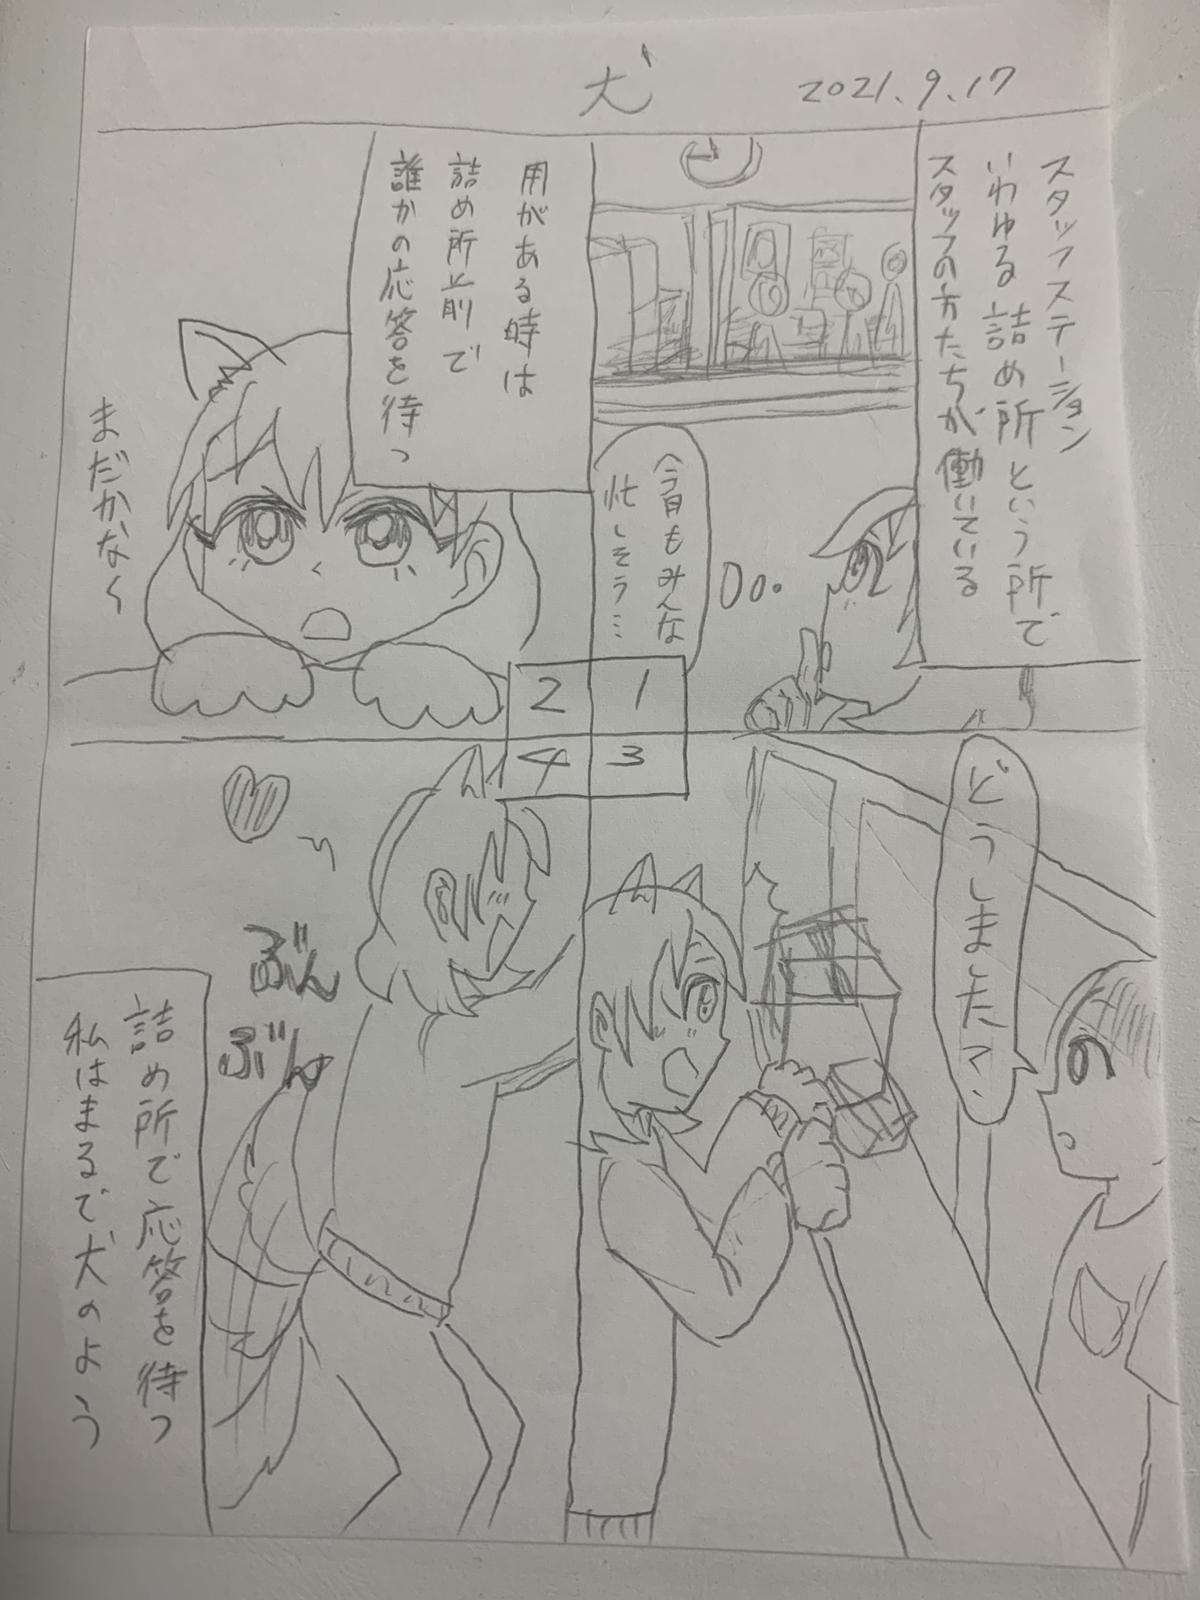 犬
2021.9.17
スタッフステーション
いわゆる詰め所という所で
スタッフの方たちが働いている
今日もみんな
忙しそう…
1
用がある時は
詰め所前で
誰かの応答を待つ
まだかな〜
2
どうしました?
3
ぶん
ぶん
詰め所で応答を待つ
私はまるで犬のよう
4